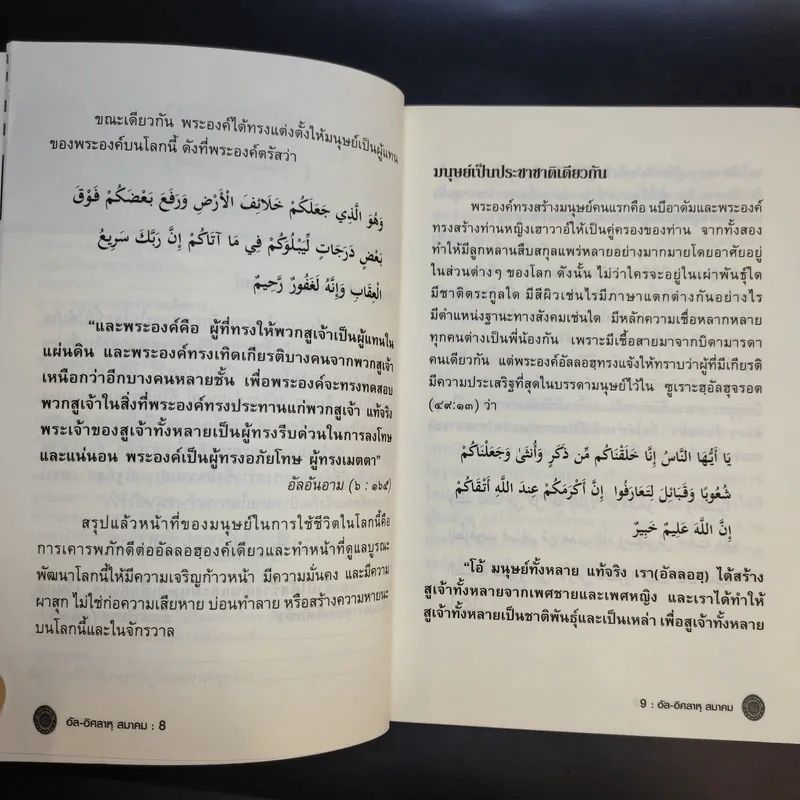 ขณะเดียวกัน พระองค์ได้ทรงแต่งตั้งให้มนุษย์เป็นผู้แทน
ของพระองค์บนโลกนี้ ดังที่พระองค์ตรัสว่า
وَهُوَ الَّذِي جَعَلَكُمْ خَلَائِفَ الْأَرْضِ وَرَفَعَ بَعْضَكُمْ فَوْقَ
بَعْضٍ دَرَجَاتٍ لِّيَبْلُوَكُمْ فِي مَا آتَاكُمْ إِنَّ رَبَّكَ سَرِيعُ
الْعِقَابِ وَإِنَّهُ لَغَفُورٌ رَّحِيمٌ
“และพระองค์คือ ผู้ที่ทรงให้พวกสูเจ้าเป็นผู้แทนใน
แผ่นดิน และพระองค์ทรงเทิดเกียรติบางคนจากพวกสูเจ้า
เหนือกว่าอีกบางคนหลายชั้น เพื่อพระองค์จะทรงทดสอบ
พวกสูเจ้าในสิ่งที่พระองค์ทรงประทานแก่พวกสูเจ้า แท้จริง
พระเจ้าของสูเจ้าทั้งหลายเป็นผู้ทรงรีบด่วนในการลงโทษ
และแน่นอน พระองค์เป็นผู้ทรงอภัยโทษ ผู้ทรงเมตตา”
อัลอันอาม (๖ : ๑๖๕)
สรุปแล้วหน้าที่ของมนุษย์ในการใช้ชีวิตในโลกนี้คือ
การเคารพภักดีต่ออัลลอฮฺองค์เดียวและทำหน้าที่ดูแลบูรณะ
พัฒนาโลกนี้ให้มีความเจริญก้าวหน้า มีความมั่นคง และมีความ
ผาสุก ไม่ใช่ก่อความเสียหาย บ่อนทำลาย หรือสร้างความหายนะ
บนโลกนี้และในจักรวาล
อัล-อิศลาหฺ สมาคม : 8
มนุษย์เป็นประชาชาติเดียวกัน
พระองค์ทรงสร้างมนุษย์คนแรกคือ นบีอาดัมและพระองค์
ทรงสร้างท่านหญิงเฮาวาอ์ให้เป็นคู่ครองของท่าน จากทั้งสอง
ทำให้มีลูกหลานสืบสกุลแพร่หลายอย่างมากมายโดยอาศัยอยู่
ในส่วนต่างๆ ของโลก ดังนั้น ไม่ว่าใครจะอยู่ในเผ่าพันธุ์ใด
มีชาติตระกูลใด มีสีผิวเช่นไรมีภาษาแตกต่างกันอย่างไร
มีตำแหน่งฐานะทางสังคมเช่นใด มีหลักความเชื่อหลากหลาย
ทุกคนต่างเป็นพี่น้องกัน เพราะมีเชื้อสายมาจากบิดามารดา
คนเดียวกัน แต่พระองค์อัลลอฮฺทรงแจ้งให้ทราบว่าผู้ที่มีเกียรติ
มีความประเสริฐที่สุดในบรรดามนุษย์ไว้ใน ซูเราะฮฺอัลฮุจรอต
(๔๙:๑๓) ว่า
يَا أَيُّهَا النَّاسُ إِنَّا خَلَقْنَاكُم مِّن ذَكَرٍ وَأُنثَى وَجَعَلْنَاكُمْ
شُعُوبًا وَقَبَائِلَ لِتَعَارَفُوا إِنَّ أَكْرَمَكُمْ عِندَ اللَّهِ أَتْقَاكُمْ
إِنَّ اللَّهَ عَلِيمٌ خَبِيرٌ
“โอ้ มนุษย์ทั้งหลาย แท้จริง เรา(อัลลอฮฺ) ได้สร้าง
สูเจ้าทั้งหลายจากเพศชายและเพศหญิง และเราได้ทำให้
สูเจ้าทั้งหลายเป็นชาติพันธุ์และเป็นเหล่า เพื่อสูเจ้าทั้งหลาย
9 : อัล-อิศลาหฺ สมาคม